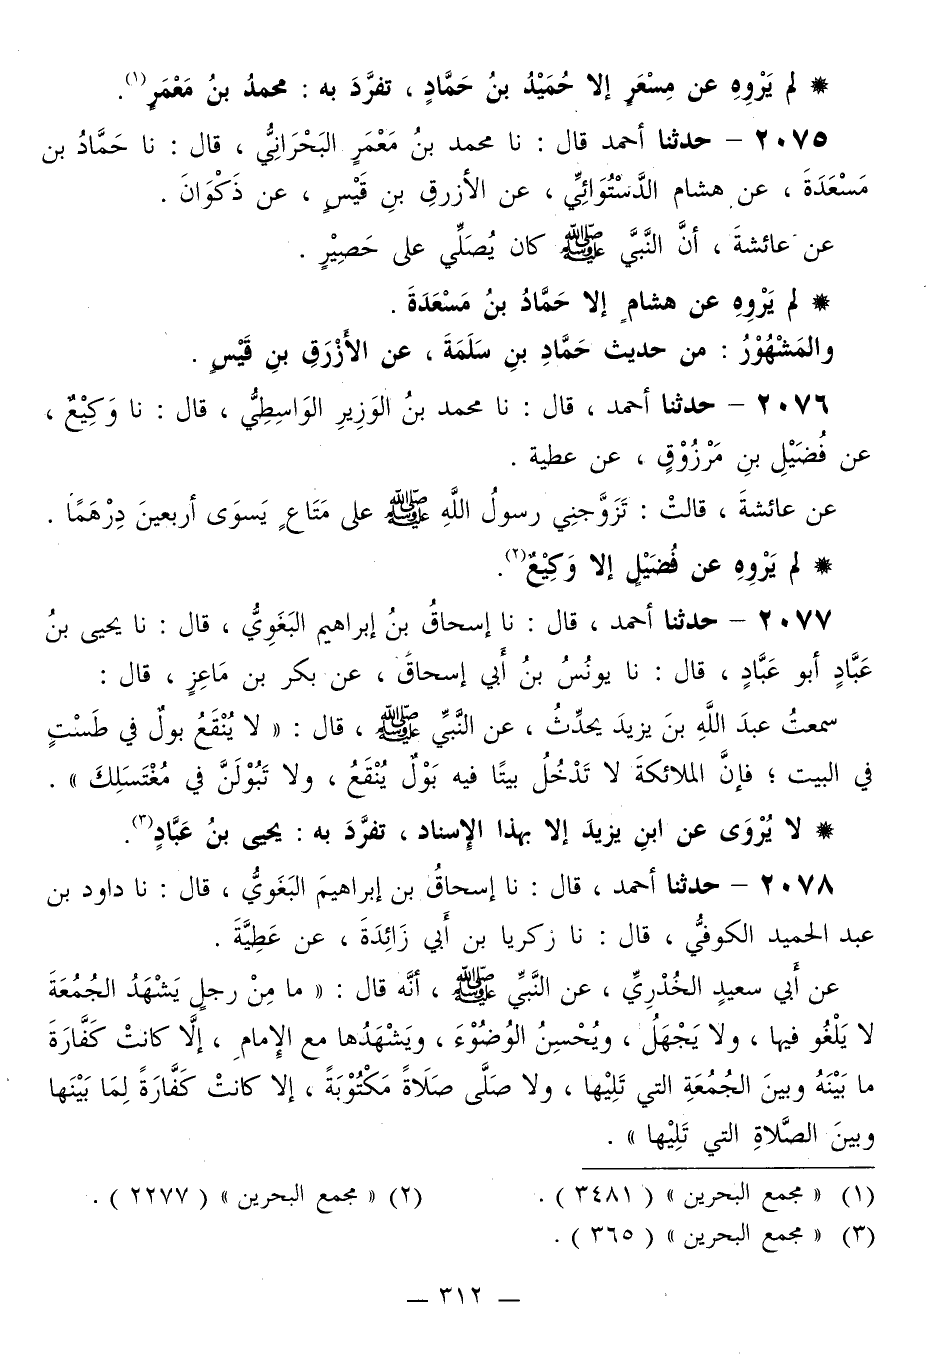 * لم يَرْوِهِ عن مِسْعَرٍ إلا حُمَيْدُ بنُ حَمَّادٍ ، تفرَّدَ به : محمدُ بنُ مَعْمَرٍ(١).
٢٠٧٥ – حدثنا أحمد قال : نا محمد بنُ مَعْمَرٍ البَحْرَانِيُّ ، قال : نا حَمَّادُ بن
مَسْعَدَةَ ، عن هشام الدَّسْتُوَائِيِّ ، عن الأزرقِ بنِ قَيْسٍ ، عن ذَكْوَانَ .
عن عائشةَ ، أنَّ النَّبيَّ ﷺ كان يُصَلِّي على حَصِيْرٍ .
* لم يَرْوِهِ عن هشامٍ إلا حَمَّادُ بنُ مَسْعَدَةَ .
والمَشْهُوْرُ : من حديث حَمَّادِ بنِ سَلَمَةَ ، عن الأَزْرَقِ بنِ قَيْسٍ .
٢٠٧٦ – حدثنا أحمد ، قال : نا محمد بنُ الوَزِيرِ الوَاسِطِيُّ ، قال : نا وَكِيْعٌ ،
عن فُضَيْلِ بنِ مَرْزُوْقٍ ، عن عطية .
عن عائشةَ ، قالتْ : تَزَوَّجنِي رسولُ اللَّهِ ﷺ على مَتَاعٍ يَسوَى أربعينَ دِرْهَمًا .
* لم يَرْوِهِ عن فُضَيْلٍ إلا وَكِيْعٌ(٢).
٢٠٧٧ – حدثنا أحمد ، قال : نا إسحاقُ بنُ إبراهيم البَغَوِيُّ ، قال : نا يحيى بنُ
عَبَّادٍ أبو عَبَّادٍ ، قال : نا يونُسُ بنُ أَبي إسحاقَ ، عن بكر بن مَاعِزٍ ، قال :
سمعتُ عبدَ اللَّهِ بنَ يزيدَ يحدِّثُ ، عن النَّبيِّ ﷺ ، قال : « لا يُنْقَعُ بولٌ في طَسْتٍ
في البيت ؛ فإنَّ الملائكةَ لا تَدْخُلُ بيتًا فيه بَوْلٌ يُنْقَعُ ، ولا تَبُوْلَنَّ في مُغْتَسَلِكَ » .
* لا يُرْوَى عن ابنِ يزيدَ إلا بهذا الإِسناد ، تفرَّدَ به : يحيى بنُ عَبَّادٍ(٣).
٢٠٧٨ – حدثنا أحمد ، قال : نا إسحاقُ بن إبراهيمَ البَغَوِيُّ ، قال : نا داود بن
عبد الحميد الكوفيُّ ، قال : نا زكريا بن أَبي زَائِدَةَ ، عن عَطِيَّةَ .
عن أَبي سعيدٍ الخُدْرِيِّ ، عن النَّبيِّ ﷺ ، أنَّه قال : « ما مِنْ رجلٍ يَشْهَدُ الجُمُعَةَ
لا يَلْغُو فيها ، ولا يَجْهَلُ ، ويُحْسِنُ الوُضُوْءَ ، ويَشْهَدُها مع الإِمامِ ، إلَّا كانتْ كَفَّارَةَ
ما بَيْنَهُ وبينَ الجُمُعَةِ التي تَلِيْها ، ولا صَلَّى صَلَاةً مَكْتُوْبَةً ، إلا كانتْ كَفَارَةً لِمَا بَيْنَها
وبينَ الصَّلاةِ التي تَلِيْها » .
(١) « مجمع البحرين » ( ٣٤٨١ ) . (٢) « مجمع البحرين » ( ٢٢٧٧ ) .
(٣) « مجمع البحرين » ( ٣٦٥ ) .
— ٣١٢ —